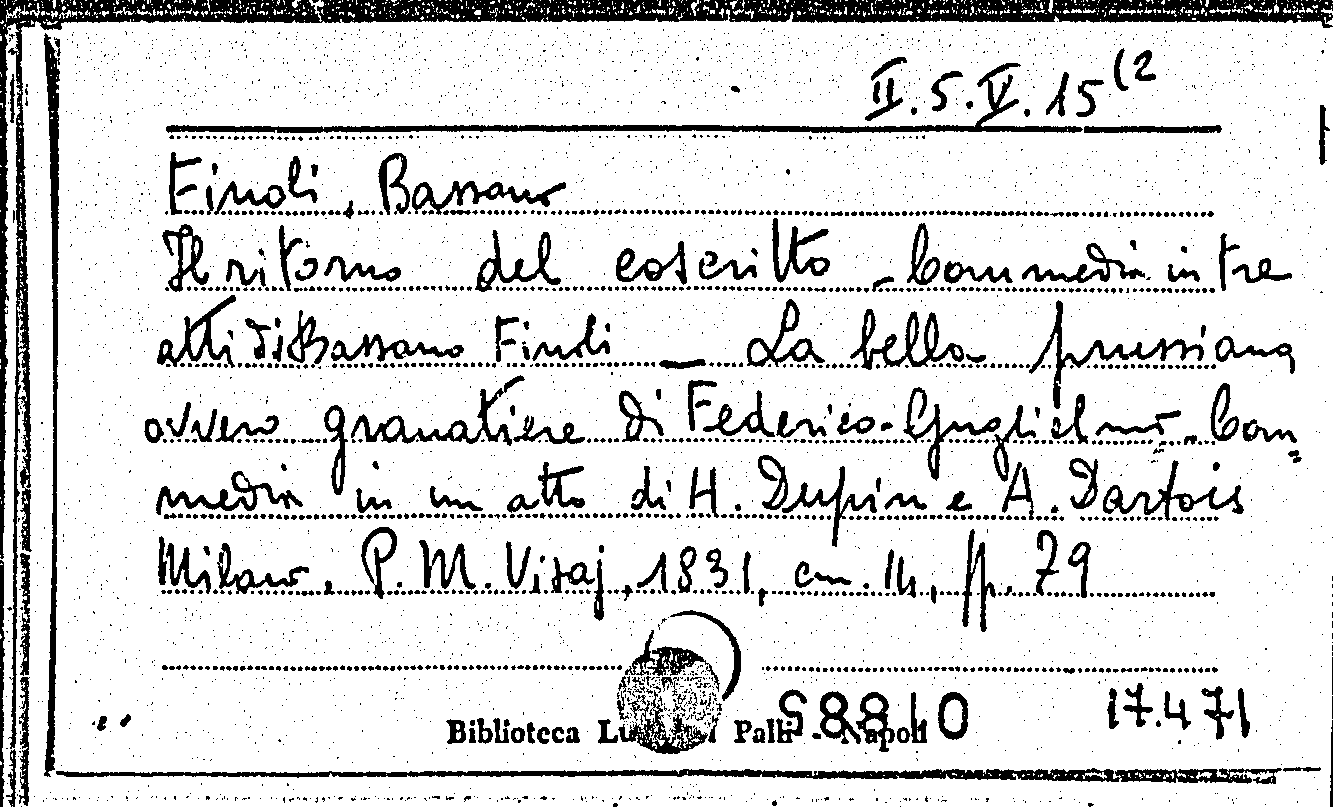 II.5.V.15(2
Finoli, Bassano
Il ritorno del coscritto - Commedia in tre
atti di Bassano Finoli - La bella prussiana
ovvero granatiere di Federico-Guglielmo - Com=
media in un atto di H. Dupin e A. Dartois
Milano, P.M. Visaj, 1831, cm. 14, pp. 79
Biblioteca Palli - Napoli
17.4.71